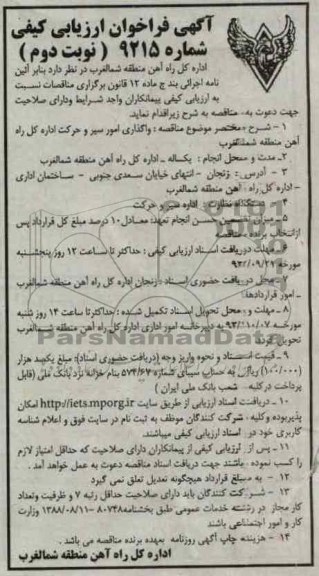 آگهی فراخوان ارزیابی کیفی
شماره ۹۲۱۵ ( نوبت دوم )
اداره کل راه آهن منطقه شمالغرب در نظر دارد بنابر آئین
نامه اجرائی بند ج ماده ۱۲ قانون برگزاری مناقصات نسبت
به ارزیابی کیفی پیمانکاران واجد شرایط ودارای صلاحیت
جهت دعوت به مناقصه به شرح زیراقدام نماید.
۱ - شرح مختصر موضوع مناقصه : واگذاری امور سیر و حرکت اداره کل راه
آهن منطقه شمالغرب
۲ - مدت و محل انجام : یکساله ـ اداره کل راه آهن منطقه شمالغرب
۳ - آدرس : زنجان - انتهای خیابان سعدی جنوبی - ساختمان اداری
- اداره کل راه آهن منطقه شمالغرب
۴ - دستگاه نظارت : اداره سیر و حرکت
۵ - میزان تضمین حسن انجام تعهد: معادل ۱۰ درصد مبلغ کل قرارداد پس
ازانتخاب برنده مناقصه
۶ - مهلت دریافت اسناد ارزیابی کیفی : حداکثر تا ساعت ۱۲ روز پنجشنبه
مورخه ۹۲/۰۹/
۷ - محل دریافت حضوری اسناد : زنجان اداره کل راه آهن منطقه شمالغرب
ـ امور قراردادها
۸ - مهلت و محل تحویل اسناد تکمیل شده : حداکثرتا ساعت ۱۴ روز شنبه
مورخه ۹۲/۱۰/۰۷ به دبیرخانه امور اداری اداره کل راه آهن منطقه شمالغرب
تحویل گردد
۹ - قیمت اسناد و نحوه واریز وجه (دریافت حضوری اسناد): مبلغ یکصد هزار
(۱۰۰/۰۰۰) ریال به حساب سیبای شماره بنام خزانه نزد بانک ملی (قابل
پرداخت درکلیه شعب بانک ملی ایران )
۱۰ - دریافت اسناد ارزیابی از طریق سایت http://iets.mporg.ir امکان
پذیربوده وکلیه شرکت کنندگان موظف به ثبت نام در سایت فوق و اعلام شناسه
کاربری خود در اسناد ارزیابی کیفی میباشند.
۱۱ - پس از ارزیابی کیفی از پیمانکاران دارای صلاحیت که حداقل امتیاز لازم
را کسب نموده باشند جهت دریافت اسناد مناقصه دعوت به عمل خواهد آمد .
۱۲ - به مبلغ قرارداد هیچگونه تعدیل تعلق نمی گیرد
۱۳ - شرکت کنندگان باید دارای صلاحیت حداقل رتبه ۷ و ظرفیت وتعداد
کار مجاز در رشته خدمات عمومی طبق بخشنامه ۸۰۷۴۸ - ۱۳۸۸/۰۸/۱۱ وزارت
کار و امور اجتماعی باشند
۱۴ - هزینه چاپ آگهی روزنامه بعهده برنده مناقصه می باشد .
اداره کل راه آهن منطقه شمالغرب
ParsNamadData